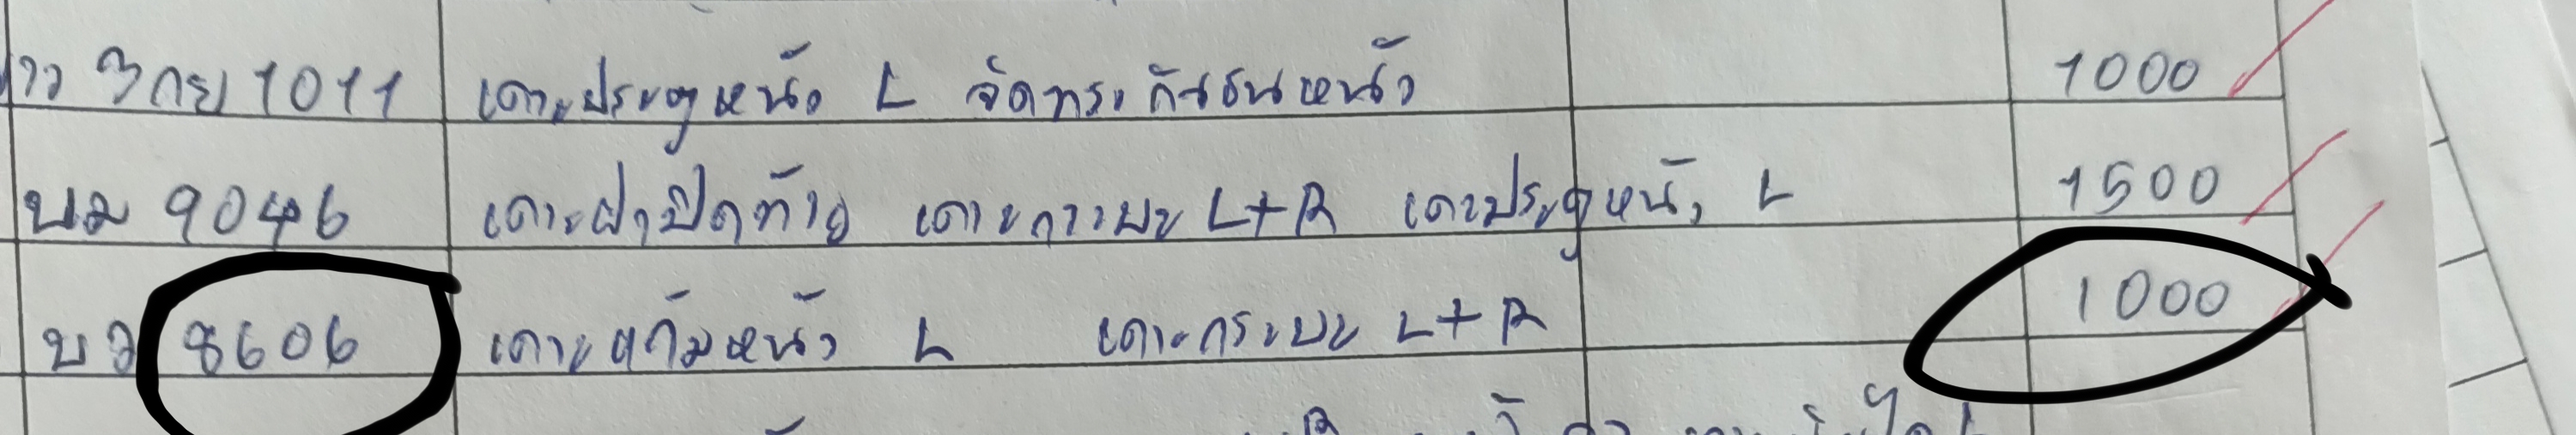 าว 3กย 1011 เคาะประตูหน้า L จัดทรง กันชนหน้า 1000
บม 9046 เคาะฝาปิดท้าย เคาะกระบะ L+R เคาะประตูหน้า L 1500
บว 8606 เคาะแก้มหน้า L เคาะกระบะ L+R 1000